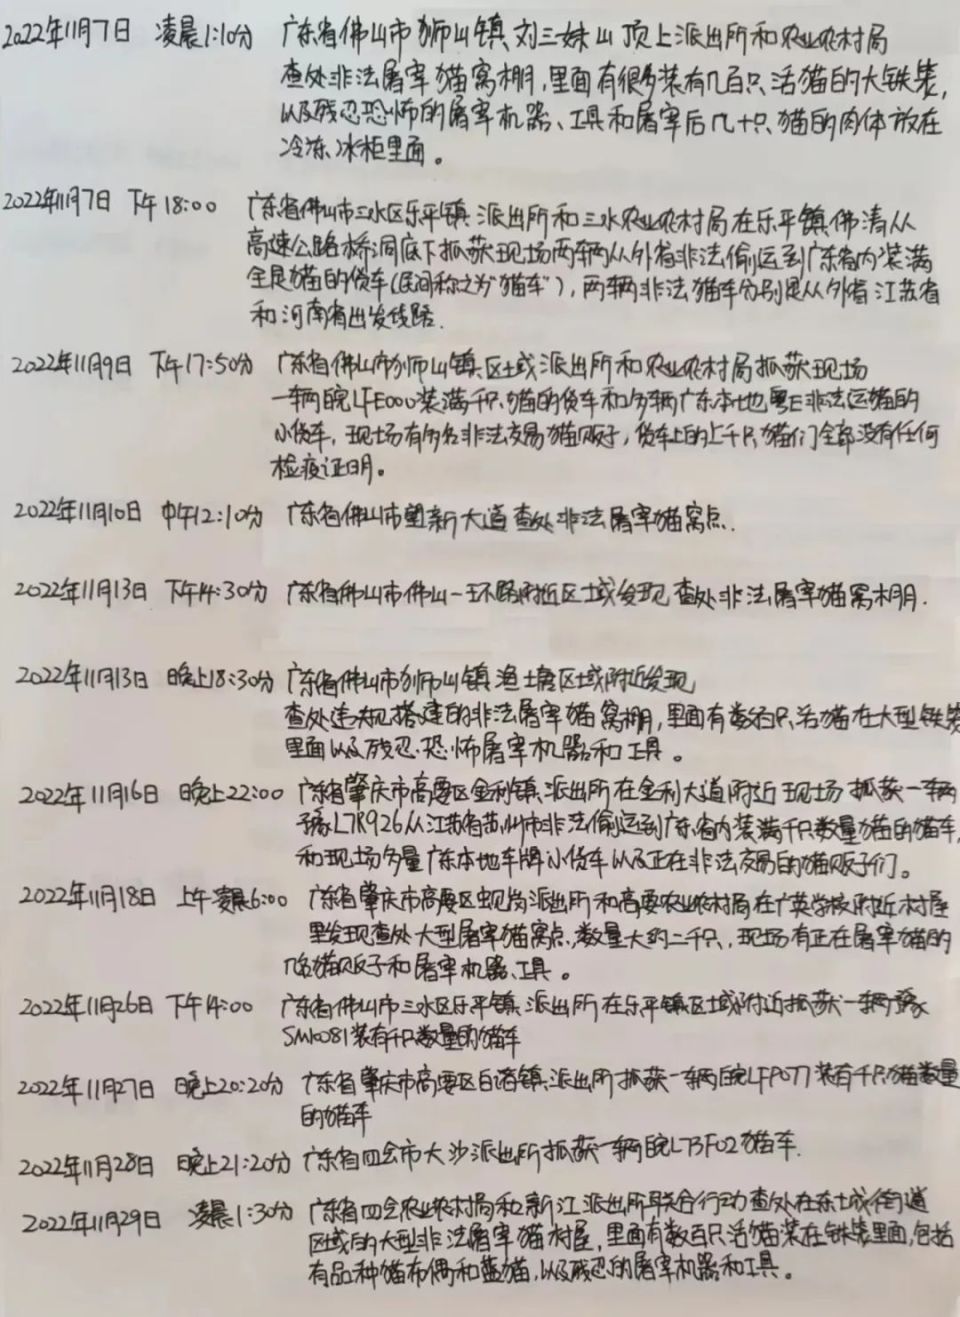 2022年11月7日 凌晨1:10分 广东省佛山市狮山镇刘三妹山顶上派出所和农业农村局
查处非法屠宰猫窝棚,里面有很多装有几百只活猫的大铁笼,
以及残忍恐怖的屠宰机器、工具和屠宰后几十只猫的肉体放在
冷冻冰柜里面。
2022年11月7日 下午18:00 广东省佛山市三水区乐平镇派出所和三水农业农村局在乐平镇佛清从
高速公路桥洞底下抓获现场两辆从外省非法偷运到广东省内装满
全是猫的货车(民间称之为"猫车"),两辆非法猫车分别是从外省江苏省
和河南省出发线路.
2022年11月9日 下午17:50分 广东省佛山市狮山镇区域派出所和农业农村局抓获现场
一辆皖LFE000装满千只猫的货车和多辆广东本地粤E非法运猫的
小货车,现场有多名非法交易猫贩子,货车上的上千只猫们全部没有任何
检疫证明。
2022年11月10日 中午12:10分 广东省佛山市塱新大道查处非法屠宰猫窝点.
2022年11月13日 下午14:30分 广东省佛山市佛山一环路附近区域发现查处非法屠宰猫窝棚.
2022年11月13日 晚上18:30分 广东省佛山市狮山镇渔塘区域附近发现
查处违规搭建的非法屠宰猫窝棚,里面有数百只活猫在大型铁笼
里面以及残忍恐怖屠宰机器和工具。
2022年11月16日 晚上22:00 广东省肇庆市高要区金利镇派出所在金利大道附近现场抓获一辆
豫L7R926从江苏省苏州市非法偷运到广东省内装满千只数量猫的猫车,
和现场多量广东本地车牌小货车以及正在非法交易的猫贩子们。
2022年11月18日 上午凌晨6:00 广东省肇庆市高要区蚬岗派出所和高要农业农村局在广英学校附近村屋
里发现查处大型屠宰猫窝点,数量大约二千只,现场有正在屠宰猫的
几名猫贩子和屠宰机器、工具。
2022年11月26日 下午14:00 广东省佛山市三水区乐平镇派出所在乐平镇区域附近抓获一辆豫
SMK081装有千只数量的猫车
2022年11月27日 晚上20:20分 广东省肇庆市高要区白诸镇派出所抓获一辆皖LFP077装有千只猫数量
的猫车
2022年11月28日 晚上21:20分 广东省四会市大沙派出所抓获一辆皖L73F02猫车.
2022年11月29日 凌晨1:30分 广东省四会农业农村局和新江派出所联合行动查处在东城街道
区域的大型非法屠宰猫村屋,里面有数百只活猫装在铁笼里面,包括
有品种猫布偶和蓝猫,以及残忍的屠宰机器和工具。